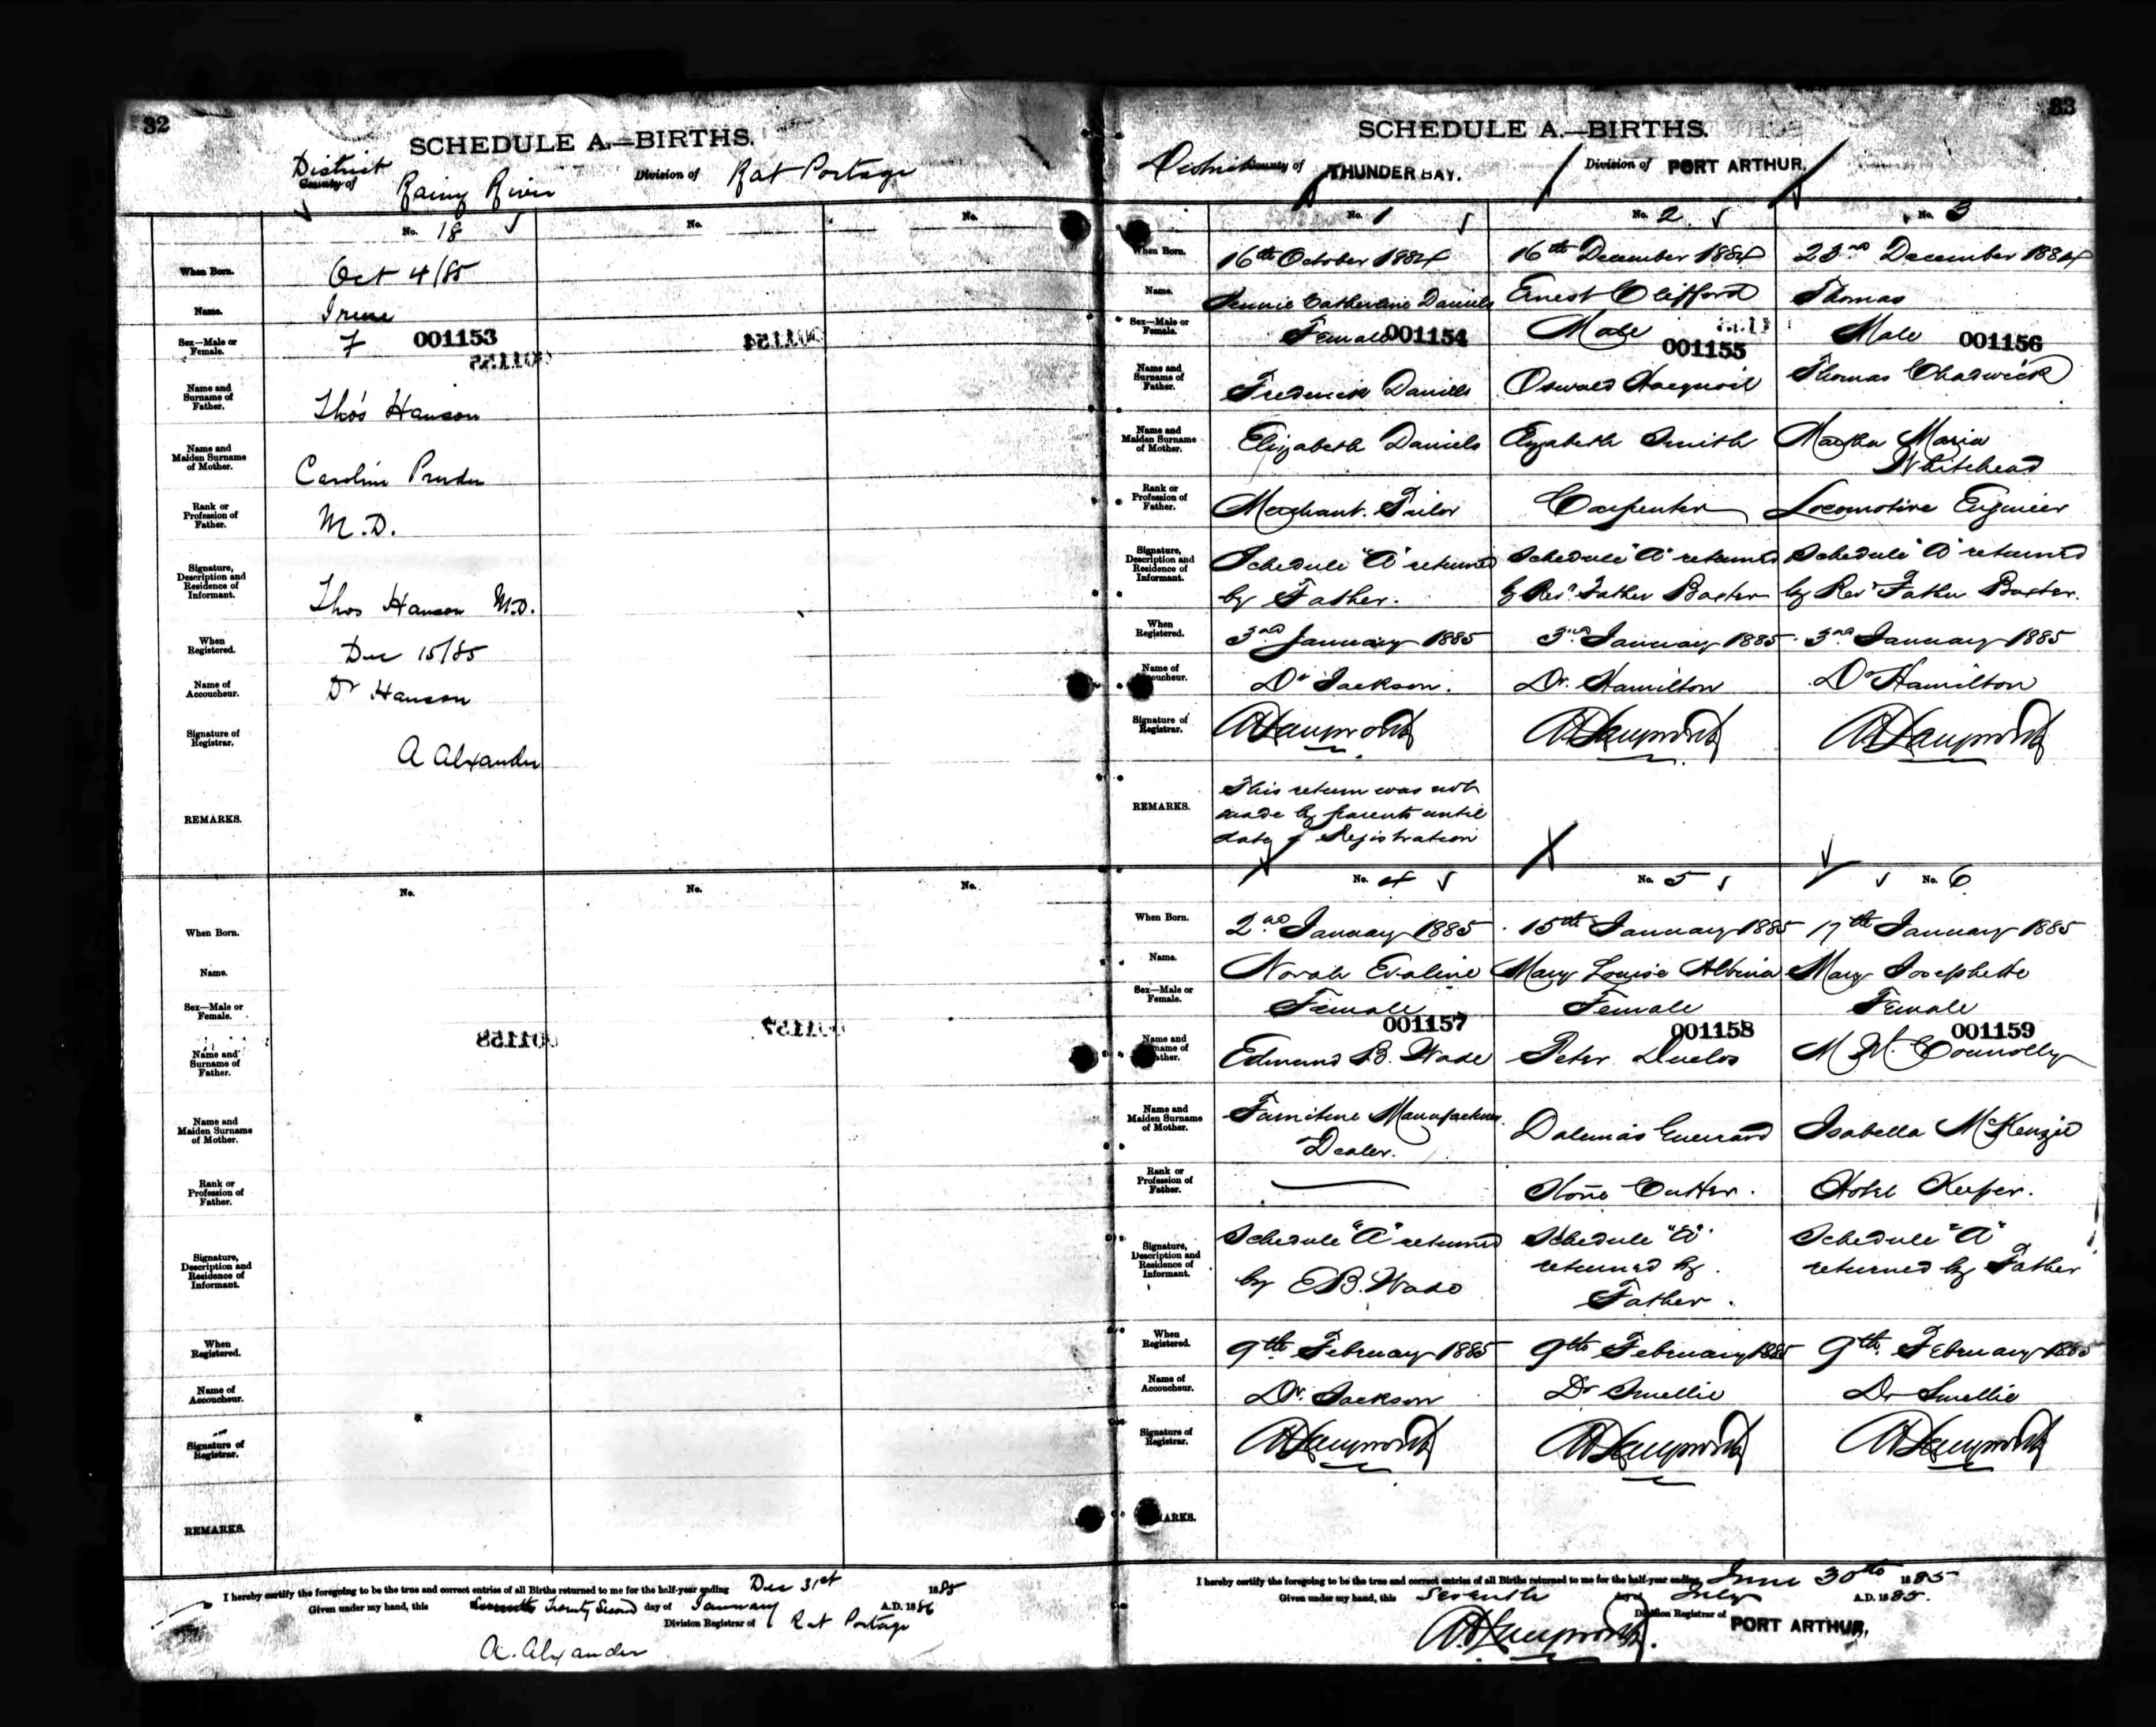 32
SCHEDULE A.—BIRTHS.
District
County of Rainy River
Division of Rat Portage
No. 18
No.
No.
When Born. Oct 4/85
Name. Irene
Sex—Male or Female. F 001153
Name and Surname of Father. Thos Hanson
Name and Maiden Surname of Mother. Caroline Pruden
Rank or Profession of Father. M.D.
Signature, Description and Residence of Informant. Thos Hanson M.D.
When Registered. Dec 15/85
Name of Accoucheur. Dr Hanson
Signature of Registrar. A Alexander
REMARKS.
No.
No.
No.
When Born.
Name.
Sex—Male or Female.
Name and Surname of Father.
Name and Maiden Surname of Mother.
Rank or Profession of Father.
Signature, Description and Residence of Informant.
When Registered.
Name of Accoucheur.
Signature of Registrar.
REMARKS.
I hereby certify the foregoing to be the true and correct entries of all Births returned to me for the half-year ending Dec 31st 1885
Given under my hand, this Twenty Second day of January A.D. 1886
Division Registrar of Rat Portage
A. Alexander
33
SCHEDULE A.—BIRTHS.
District County of THUNDER BAY.
Division of PORT ARTHUR.
No. 1
No. 2
No. 3
When Born. 16th October 1884 16th December 1884 23rd December 1884
Name. Jennie Catherine Daniels Ernest Clifford Thomas
Sex—Male or Female. Female 001154 Male 001155 Male 001156
Name and Surname of Father. Frederick Daniels Oswald Thomas Chadwick
Name and Maiden Surname of Mother. Elizabeth Daniels Elizabeth Smith Martha Maria
Whitehead
Rank or Profession of Father. Merchant Tailor Carpenter Locomotive Engineer
Signature, Description and Residence of Informant. Schedule "A" returned Schedule "A" returned Schedule "A" returned
by Father. by Revd Father Baxter by Revd Father Baxter.
When Registered. 3rd January 1885 3rd January 1885 3rd January 1885
Name of Accoucheur. Dr Jackson. Dr. Hamilton Dr Hamilton
Signature of Registrar.
REMARKS. This return was not
made by parents until
date of Registration
No. 4
No. 5
No. 6
When Born. 2nd January 1885 15th January 1885 17th January 1885
Name. Norah Evaline Mary Louise Albina Mary Josephette
Sex—Male or Female. Female Female Female
001157 001158 001159
Name and Surname of Father. Edmund B. Wade Peter Duclos M. W. Connolly
Name and Maiden Surname of Mother. Furniture Manufacturer Guerrard Isabella McKenzie
Dealer.
Rank or Profession of Father. — Stone Cutter. Hotel Keeper.
Signature, Description and Residence of Informant. Schedule "A" returned Schedule "A" Schedule "A"
by E.B. Wade returned by returned by Father
Father.
When Registered. 9th February 1885 9th February 1885 9th February 1885
Name of Accoucheur. Dr. Jackson Dr Smellie Dr Smellie
Signature of Registrar.
REMARKS.
I hereby certify the foregoing to be the true and correct entries of all Births returned to me for the half-year ending June 30th 1885
Given under my hand, this Seventh day of July A.D. 1885.
Division Registrar of PORT ARTHUR.